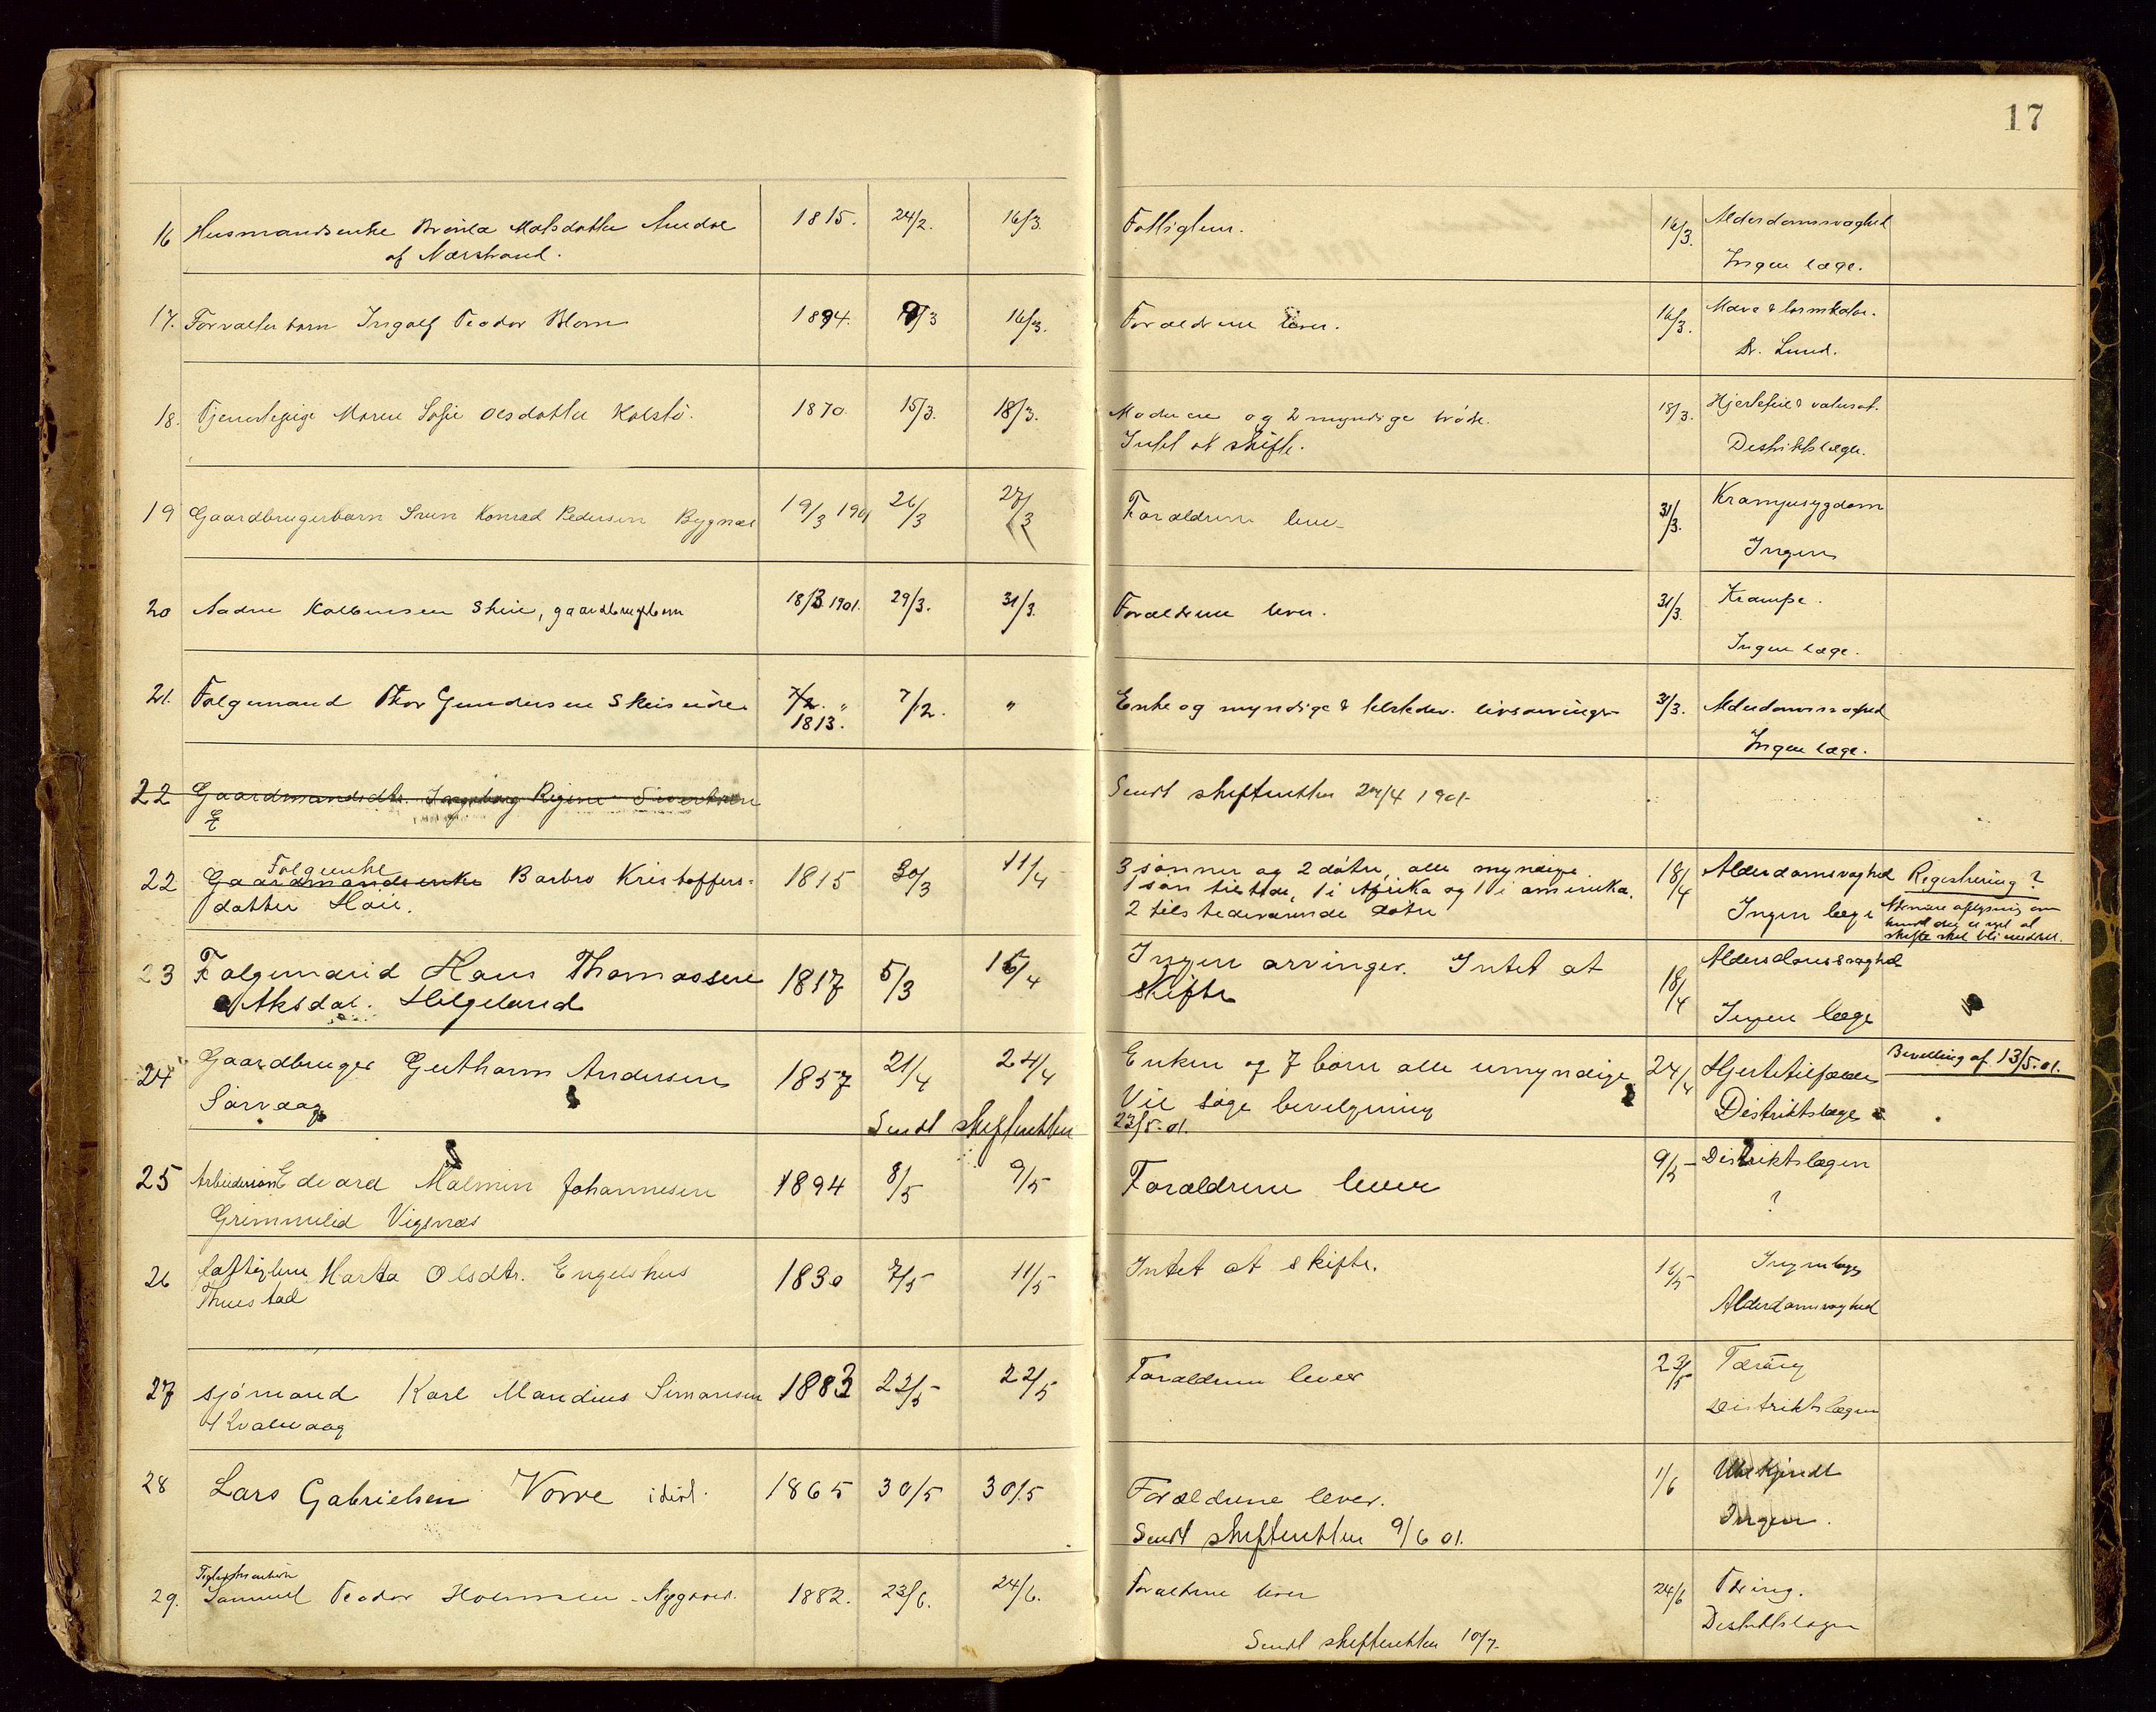 17
16 Husmandsenke Malsdatter 1815. 24/2. 16/3. Fattiglem. 16/3. Alderdomsvaghed
af Nærstrand. Ingen læge.
17. Forvalterbarn Ingolf Teodor Blom 1894. /3 16/3. Forældrene lever. 16/3. Mave &
Dr. Lund.
18. Tjenestepige Maren Sofie Olsdatter Kolstö. 1870. 15/3. 18/3. Moderen og 2 myndige brödre. 18/3. Hjertefeil &
Intet at skifte. Distriktslægen.
19 Gaardbrugerbarn Sven Konrad Pedersen Bygnæs 19/3 1901 26/3 27/3 Forældrene lever 31/3. Krampesygdom
Ingen
20 Aadne Kolbensen Skeie, gaardbrugerbarn 18/3 1901. 29/3. 31/3. Forældrene lever. 31/3. Krampe.
Ingen læge.
21. Folgemand Thor Gundersen 7/2. " 7/2. " Enke og myndige & tilstedev. livsarvinger 31/3. Alderdomsvaghed
1813. Ingen læge.
22 Gaardmandsdtr. Ingeborg Regine Sivertsen Sendt skifteretten 24/4 1901.
E
Folgeenke
22 Gaardmandsenke Barbro Kristoffers= 1815 30/3 11/4 3 sönner og 2 döttre, alle myndige. 18/4 Alderdomsvaghed Registrering?
datter Höie. 1 sön tilstede, 1 i Afrika og 1 i amerika. Ingen læge
2 tilstedeværende döttre
23 Folgemand Hans Thomassen 1817 5/3 15/4 Ingen arvinger. Intet at 18/4 Alderdomsvaghed
Aksdal. Helgeland skifte Ingen læge
24 Gaardbruger Guthorm Andersen 1857 21/4 24/4 Enken og 7 börn alle umyndige 24/4 Hjertetilfælde Bevilling af 13/5.01.
Sörvaag Vil söge bevilgning Distriktslæge
Sendt skifteretten 23/5.01.
25 Edvard Malmin Johannesen 1894 8/5 9/5 Forældrene lever 9/5 Distriktslægen
Grimmelid Vigsnæs ?
26 fattiglem Marta Olsdtr. Engelshus 1830 7/5 11/5 Intet at skifte. 16/5 Ingen læge
Thuestad Alderdomsvaghed
27 sjömand Karl Mandius Simonsen 1883 22/5 22/5 Forældrene lever 23/5 Tæring
Kvalavaag Distriktslægen
28 Lars Gabrielsen Vorre idiot. 1865 30/5 30/5 Forældrene lever. 1/6 Ubekjendt
Sendt skifteretten 9/6 01. Ingen.
29. Samuel Teodor Nygaard. 1882. 23/6. 24/6. Forældrene lever 24/6 Tæring.
Sendt skifteretten 10/7. Distriktslægen